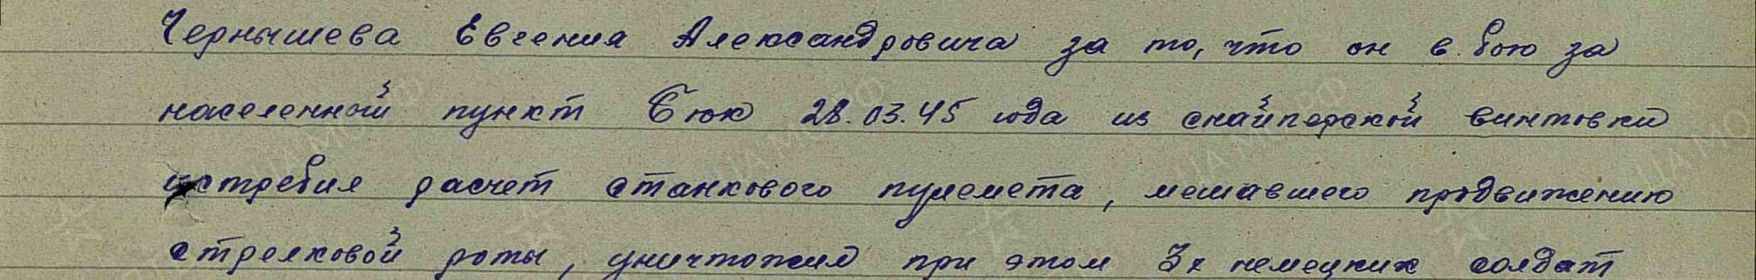 Чернышева Евгения Александровича за то, что он в бою за
населенный пункт Бюк 28.03.45 года из снайперской винтовки
истребил расчет станкового пулемета, мешавшего продвижению
стрелковой роты, уничтожил при этом 3х немецких солдат